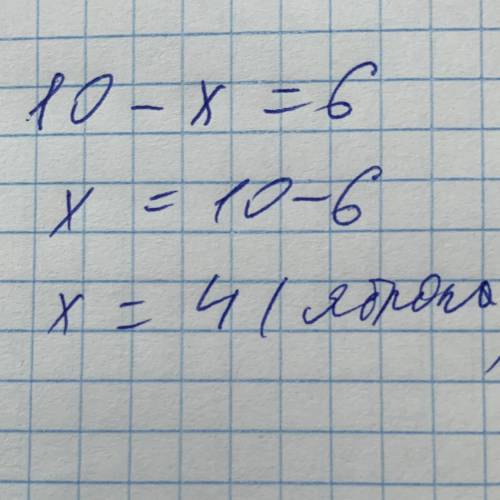 10 - x = 6
x = 10 - 6
x = 4 ( яблока